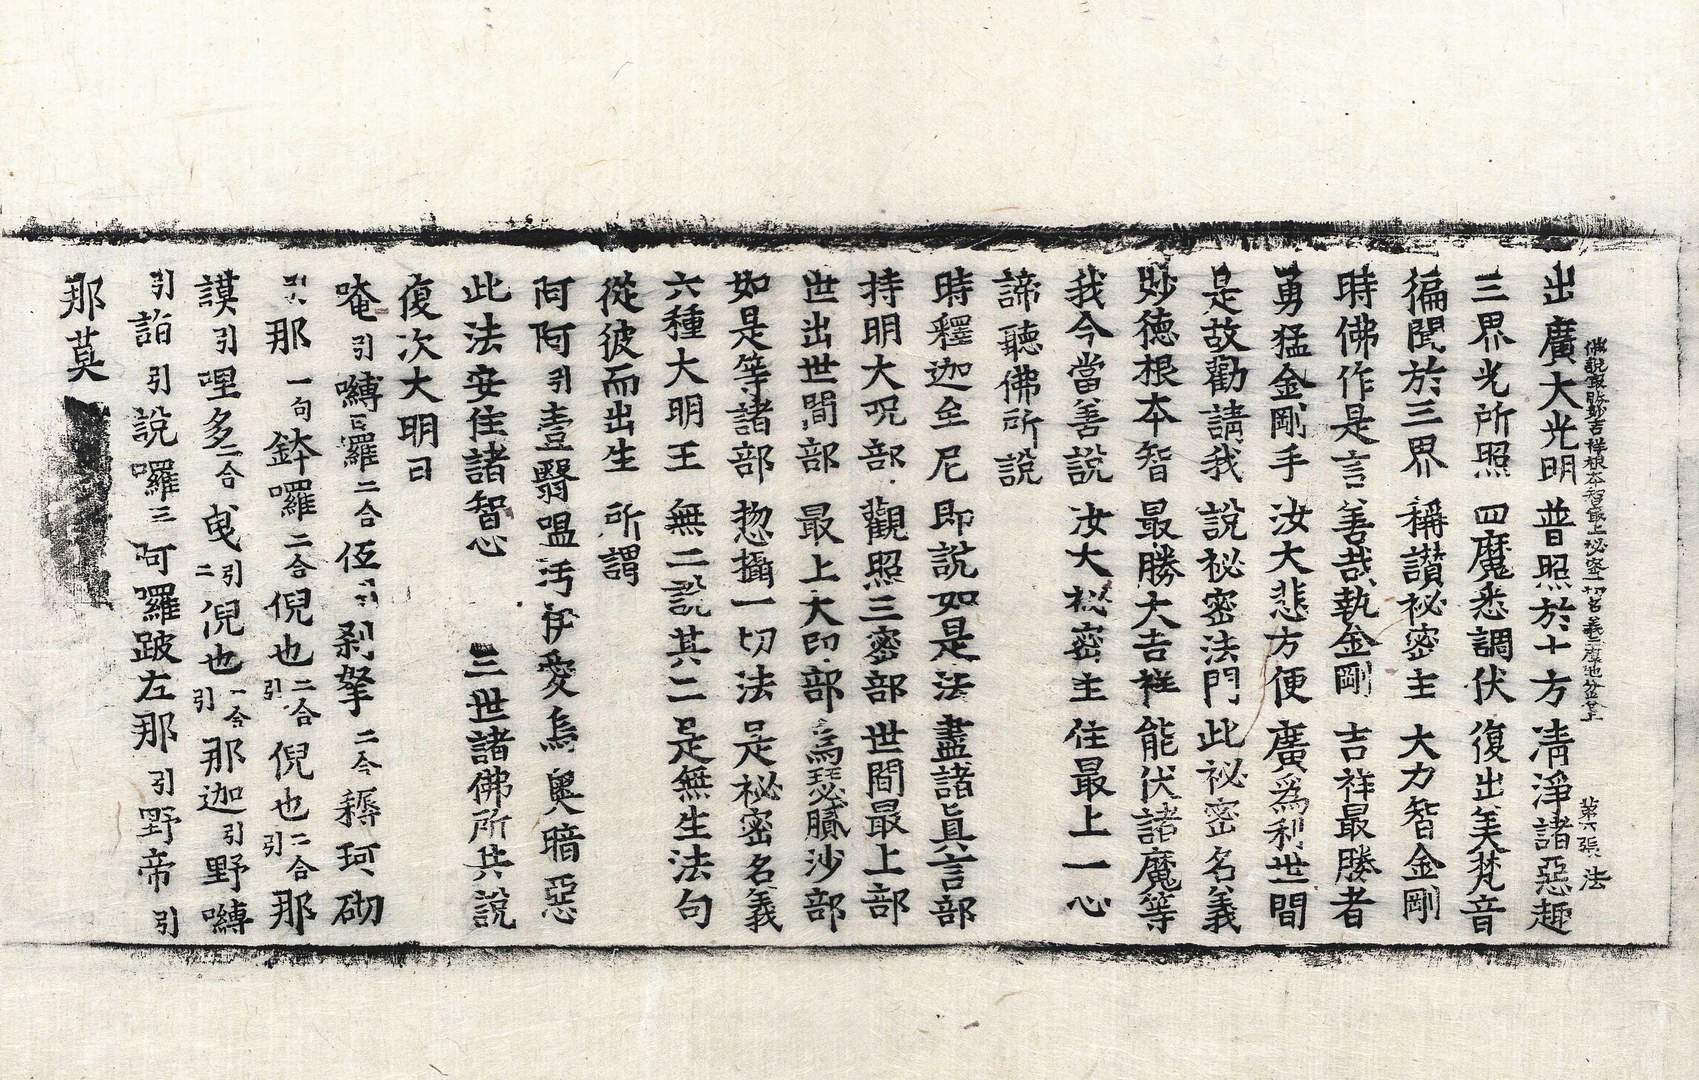 佛說最勝妙吉祥根本智最上秘密一切名義三摩地分卷上 第六張 法
出廣大光明 普照於十方 清淨諸惡趣
三界光所照 四魔悉調伏 復出美梵音
徧聞於三界 稱讚祕密主 大力智金剛
時佛作是言 善哉執金剛 吉祥最勝者
勇猛金剛手 汝大悲方便 廣爲利世間
是故勸請我 說祕密法門 此祕密名義
妙德根本智 最勝大吉祥 能伏諸魔等
我今當善說 汝大祕密主 住最上一心
諦聽佛所說
時釋迦牟尼 即說如是法 盡諸眞言部
持明大呪部 觀照三密部 世間最上部
世出世間部 最上大印部 烏瑟膩沙部
如是等諸部 惣攝一切法 是祕密名義
六種大明王 無二說其二 是無生法句
從彼而出生 所謂
阿阿引壹翳嗢汚伊愛烏奧暗惡
此法安住諸智心 三世諸佛所共說
復次大明曰
唵引嚩日囉二合伍 剎拏二合 珂砌
引那一句鉢囉二合倪也二合引倪也二合引那
謨引哩多二合曵引二倪也二合引那迦引野嚩
引詣引說囉三阿囉跛左那引野帝引
那莫